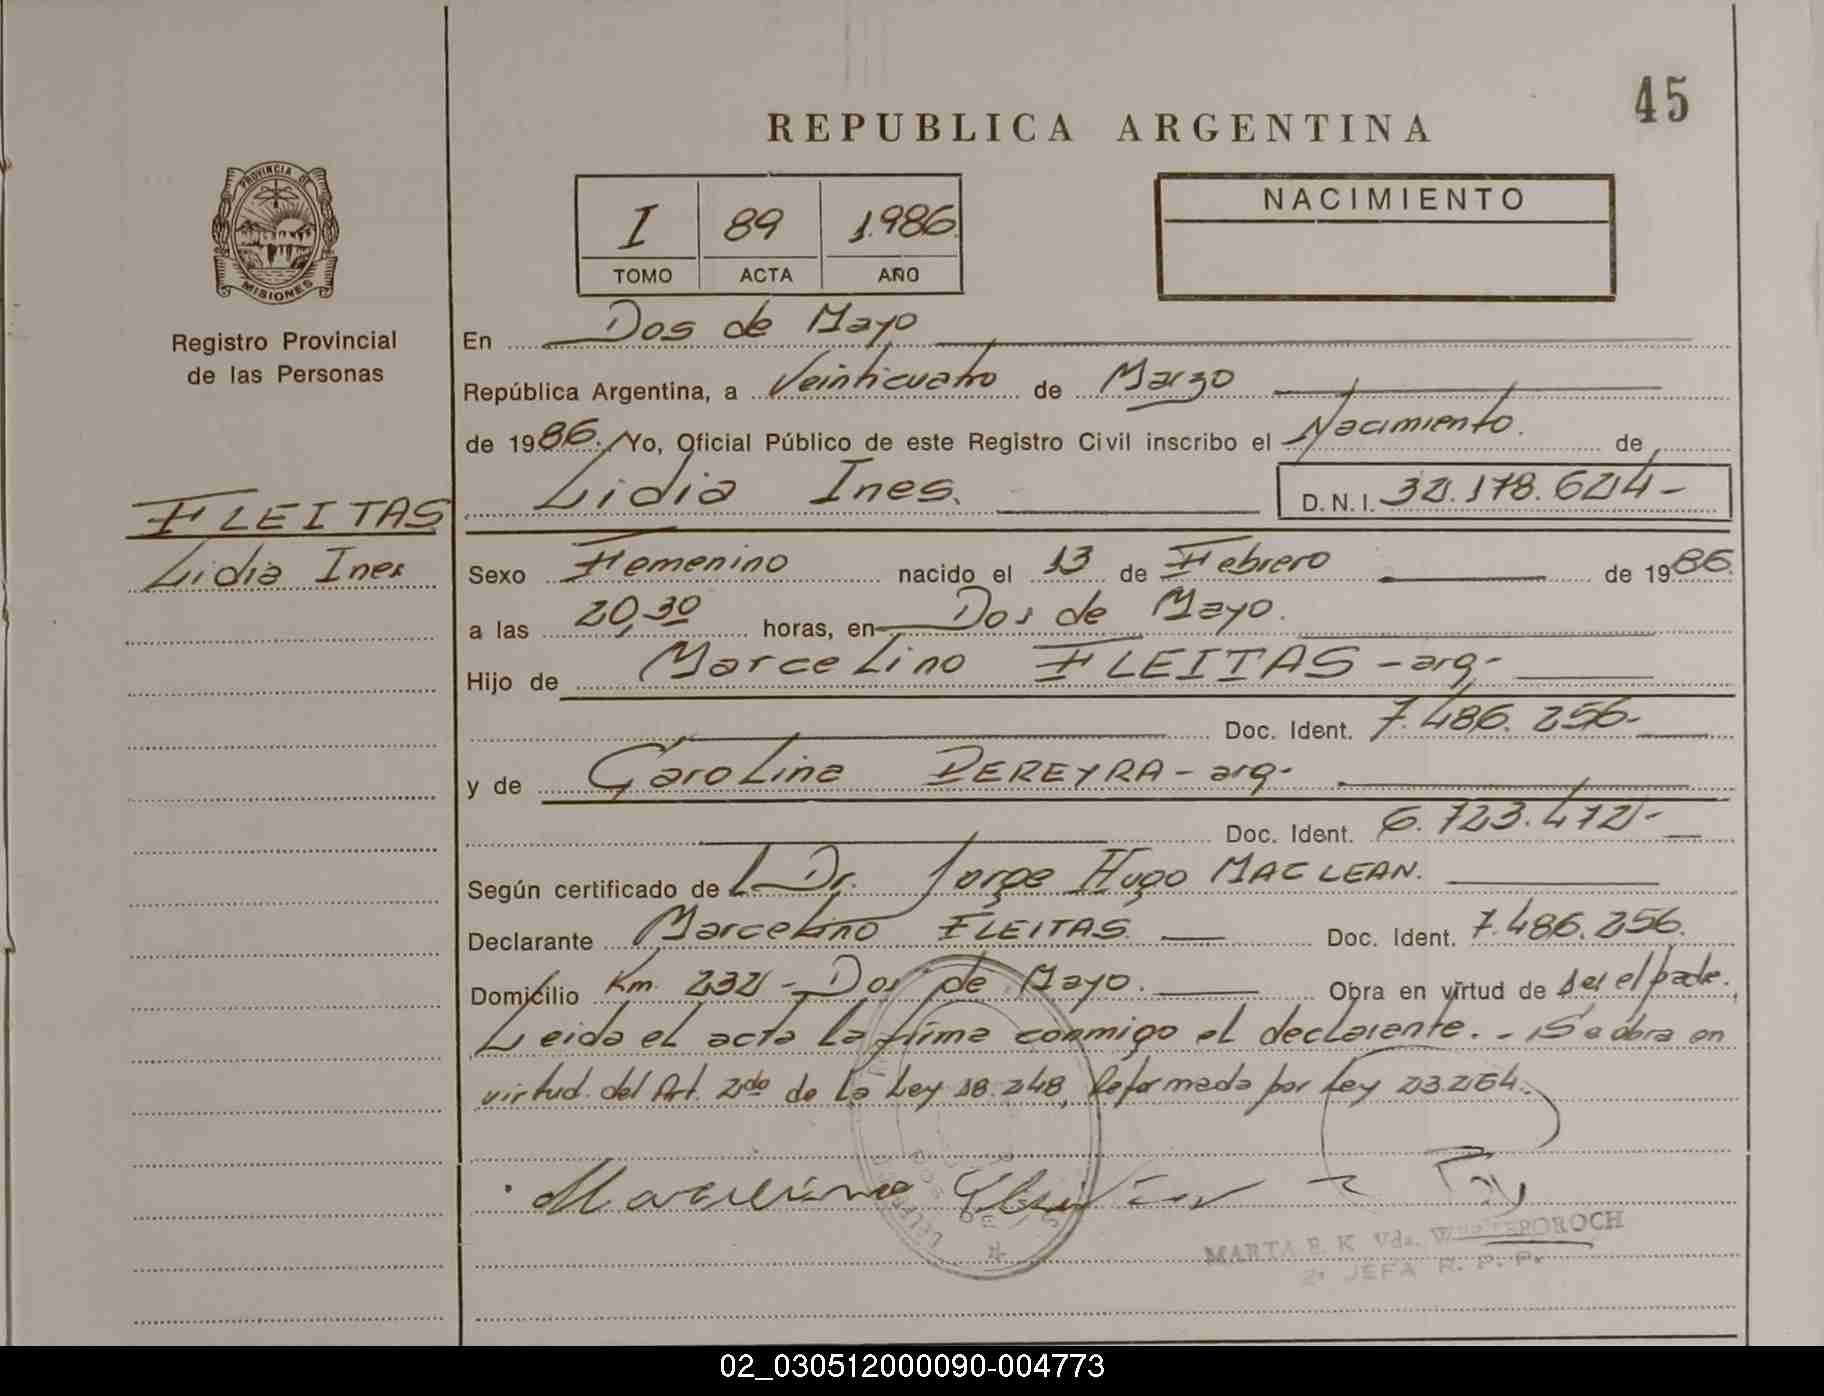 45
REPUBLICA ARGENTINA
PROVINCIA DE
MISIONES
Registro Provincial
de las Personas
I 89 1.986
TOMO ACTA AÑO
NACIMIENTO
En Dos de Mayo
República Argentina, a Veinticuatro de Marzo
de 1986. Yo, Oficial Público de este Registro Civil inscribo el Nacimiento. de
Lidia Ines. D. N. I. 32.178.624-
FLEITAS
Lidia Ines
Sexo Femenino nacido el 13 de Febrero de 1986.
a las 20,30 horas, en Dos de Mayo.
Hijo de Marcelino FLEITAS - arg-
Doc. Ident. 7.486.256-
y de Carolina PEREYRA - arg-
Doc. Ident. 6.723.472-
Según certificado de Dr. Jorge Hugo MACLEAN.
Declarante Marcelino FLEITAS. Doc. Ident. 7.486.256.
Domicilio Km. 232 - Dos de Mayo. Obra en virtud de ser el padre.
Leida el acta la firma conmigo el declarante. - Se obra en
virtud del Art. 2do de la Ley 18.248, Reformada por Ley 23.264.
MARTA E. K Vda.
2a JEFA R. P. P.
02_030512000090-004773